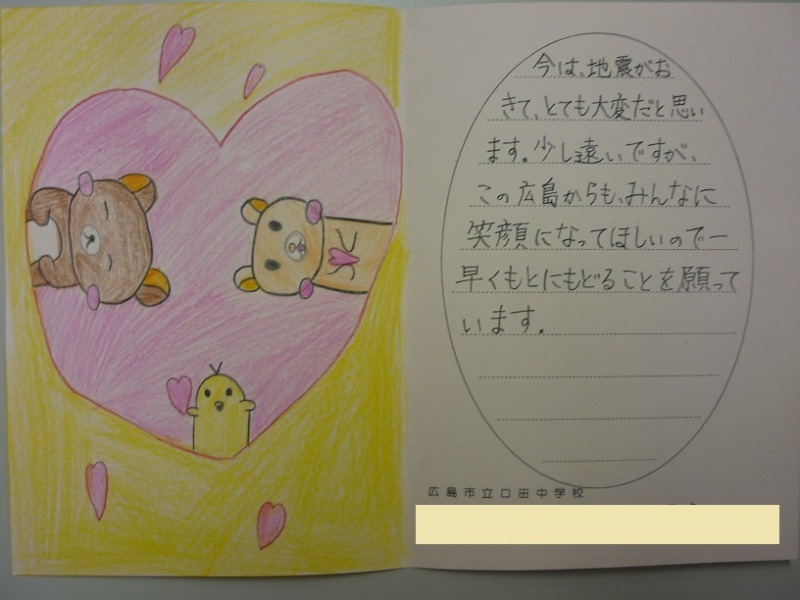 今は、地震がお
きて、とても大変だと思い
ます。少し遠いですが、
この広島からも、みんなに
笑顔になってほしいので一
早くもとにもどることを願って
います。
広島市立口田中学校